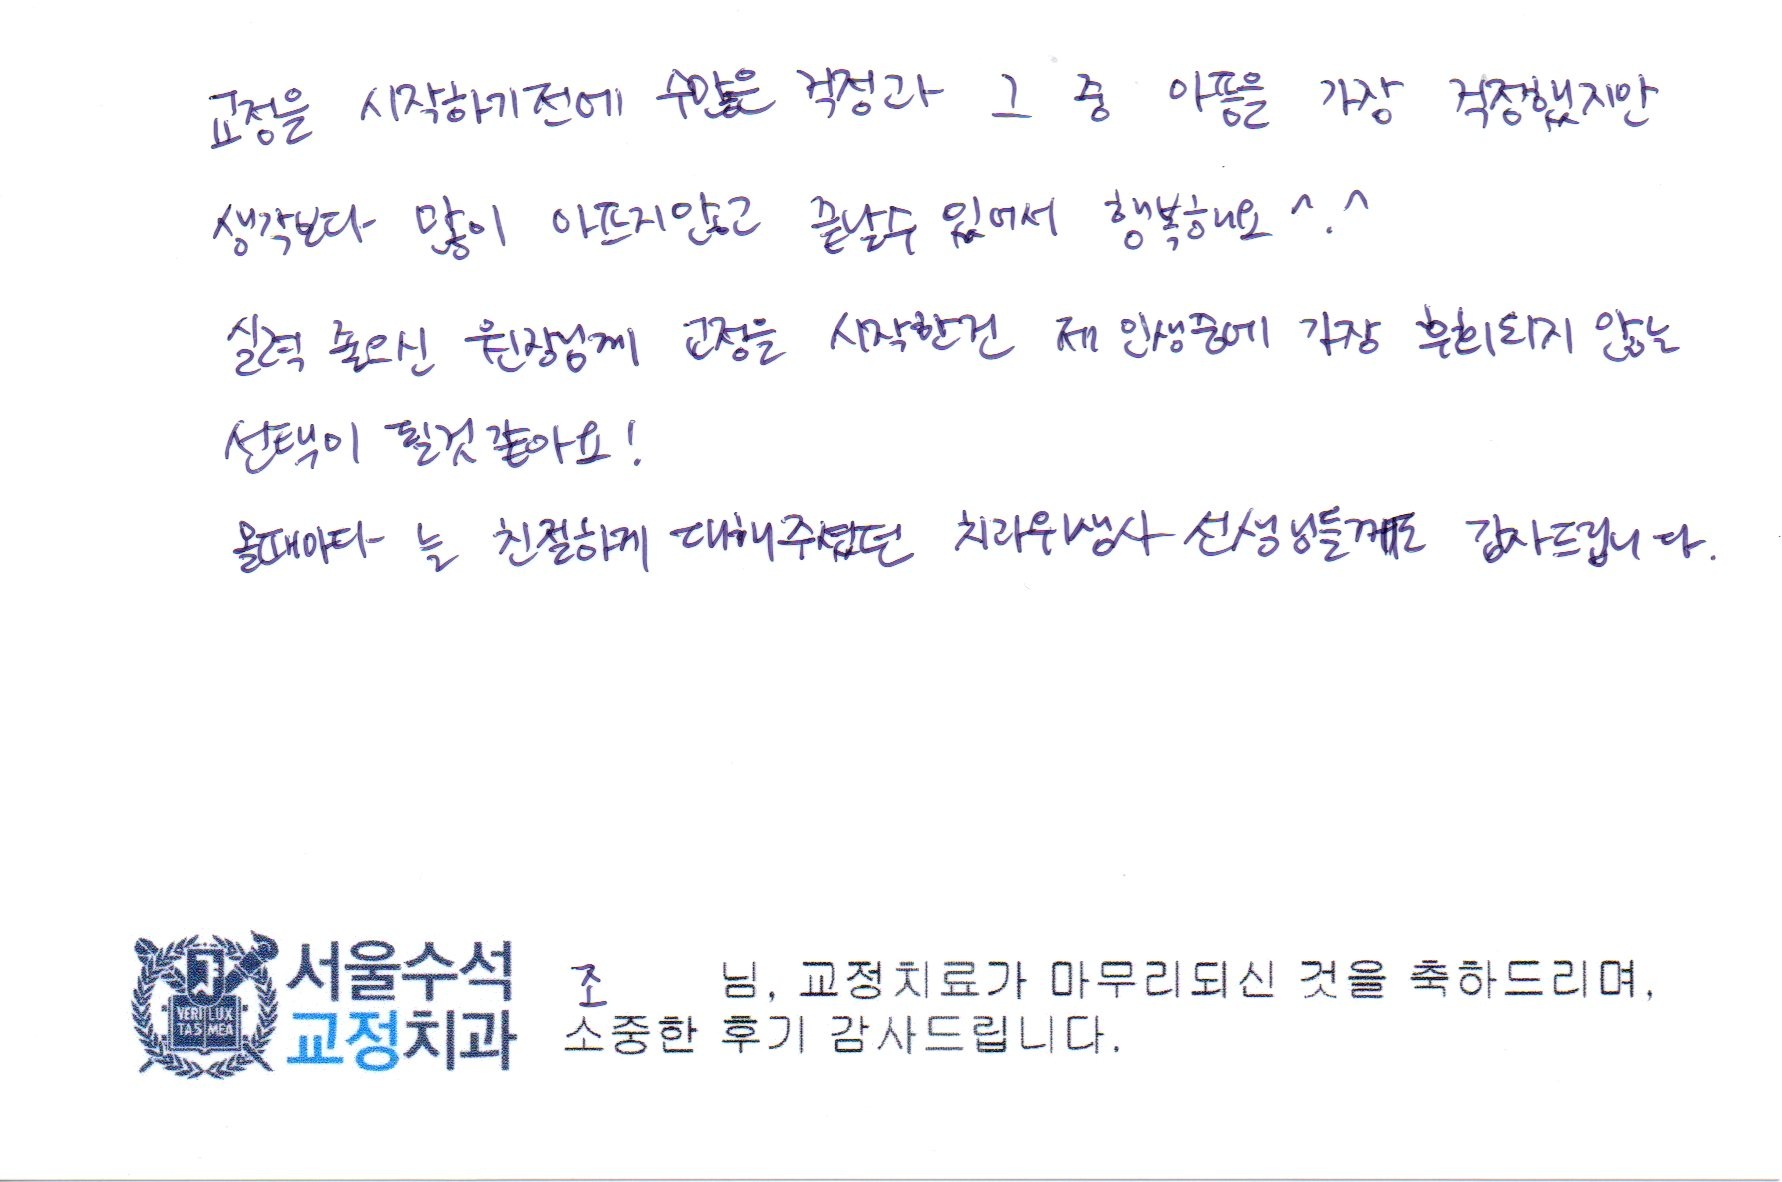 교정을 시작하기전에 수많은 걱정과 그 중 아픔을 가장 걱정했지만
생각보다 많이 아프지않고 끝날수 있어서 행복해요^.^
실력 좋으신 원장님께 교정을 시작한건 제 인생중에 가장 후회되지 않는
선택이 될것 같아요!
올때마다 늘 친절하게 대해주셨던 치과위생사 선생님들께도 감사드립니다.
VERI LUX
TAS MEA
서울수석
교정치과
조 님, 교정치료가 마무리되신 것을 축하드리며,
소중한 후기 감사드립니다.